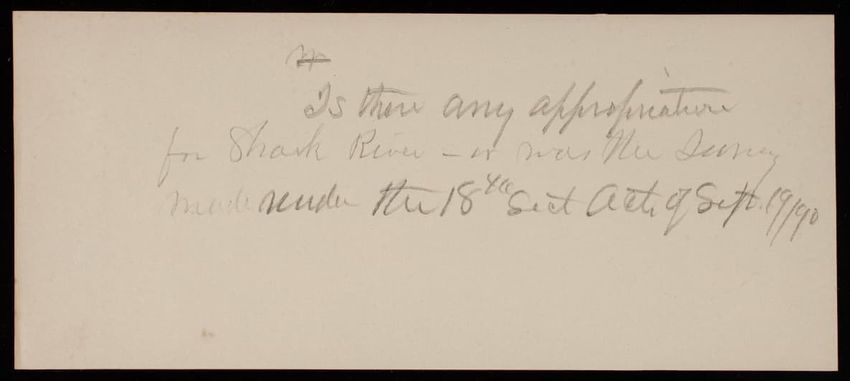 Is there any appropriation
for Shark River - or was the survey
made under the 18th Sect Act of Sept. 19/90